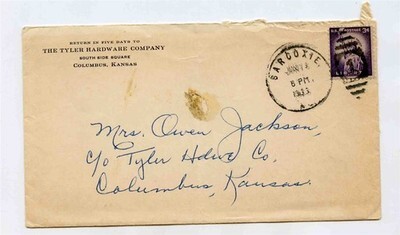 RETURN IN FIVE DAYS TO
THE TYLER HARDWARE COMPANY
SOUTH SIDE SQUARE
COLUMBUS, KANSAS
SARCOXIE
6 PM
U.S. POSTAGE
3¢
LIBERTY
Mrs. Owen Jackson,
c/o Tyler Hdwe Co,
Columbus, Kansas.